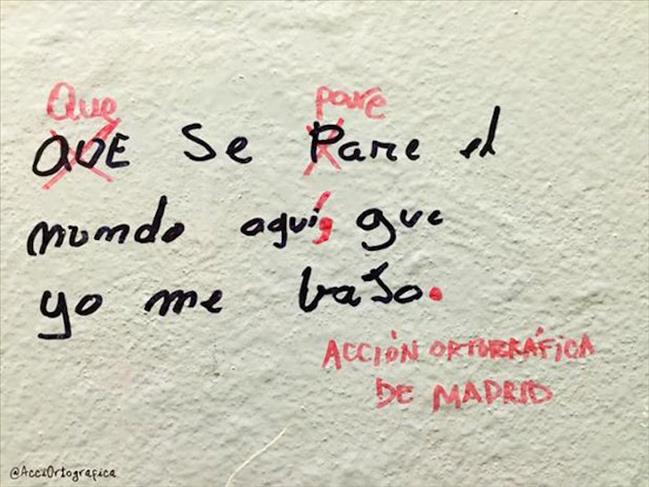 Que pare
QUE se Pare el
mundo aquí, que
yo me baJo.
ACCIÓN ORTOGRÁFICA
DE MADRID
@AcciOrtografica